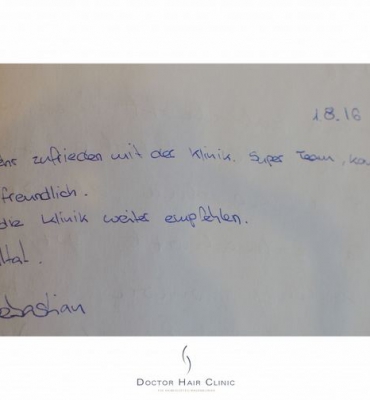 18.16
zufrieden mit der Klinik. Super Team,
freundlich.
die Klinik weiter empfehlen.
ebastian
DOCTOR HAIR CLINIC